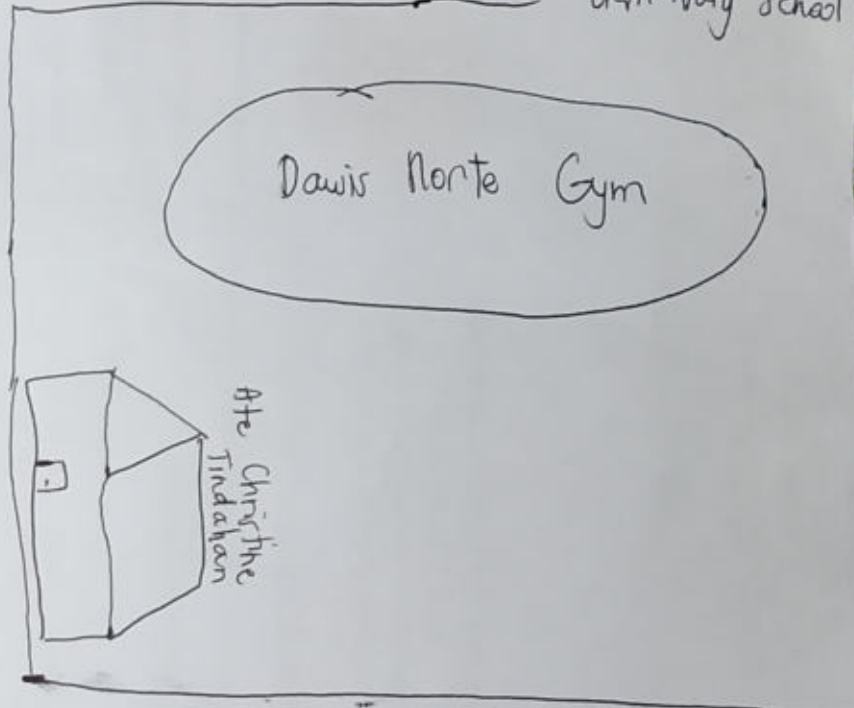 School
Dawis Norte Gym
Ate Christine
Tindahan